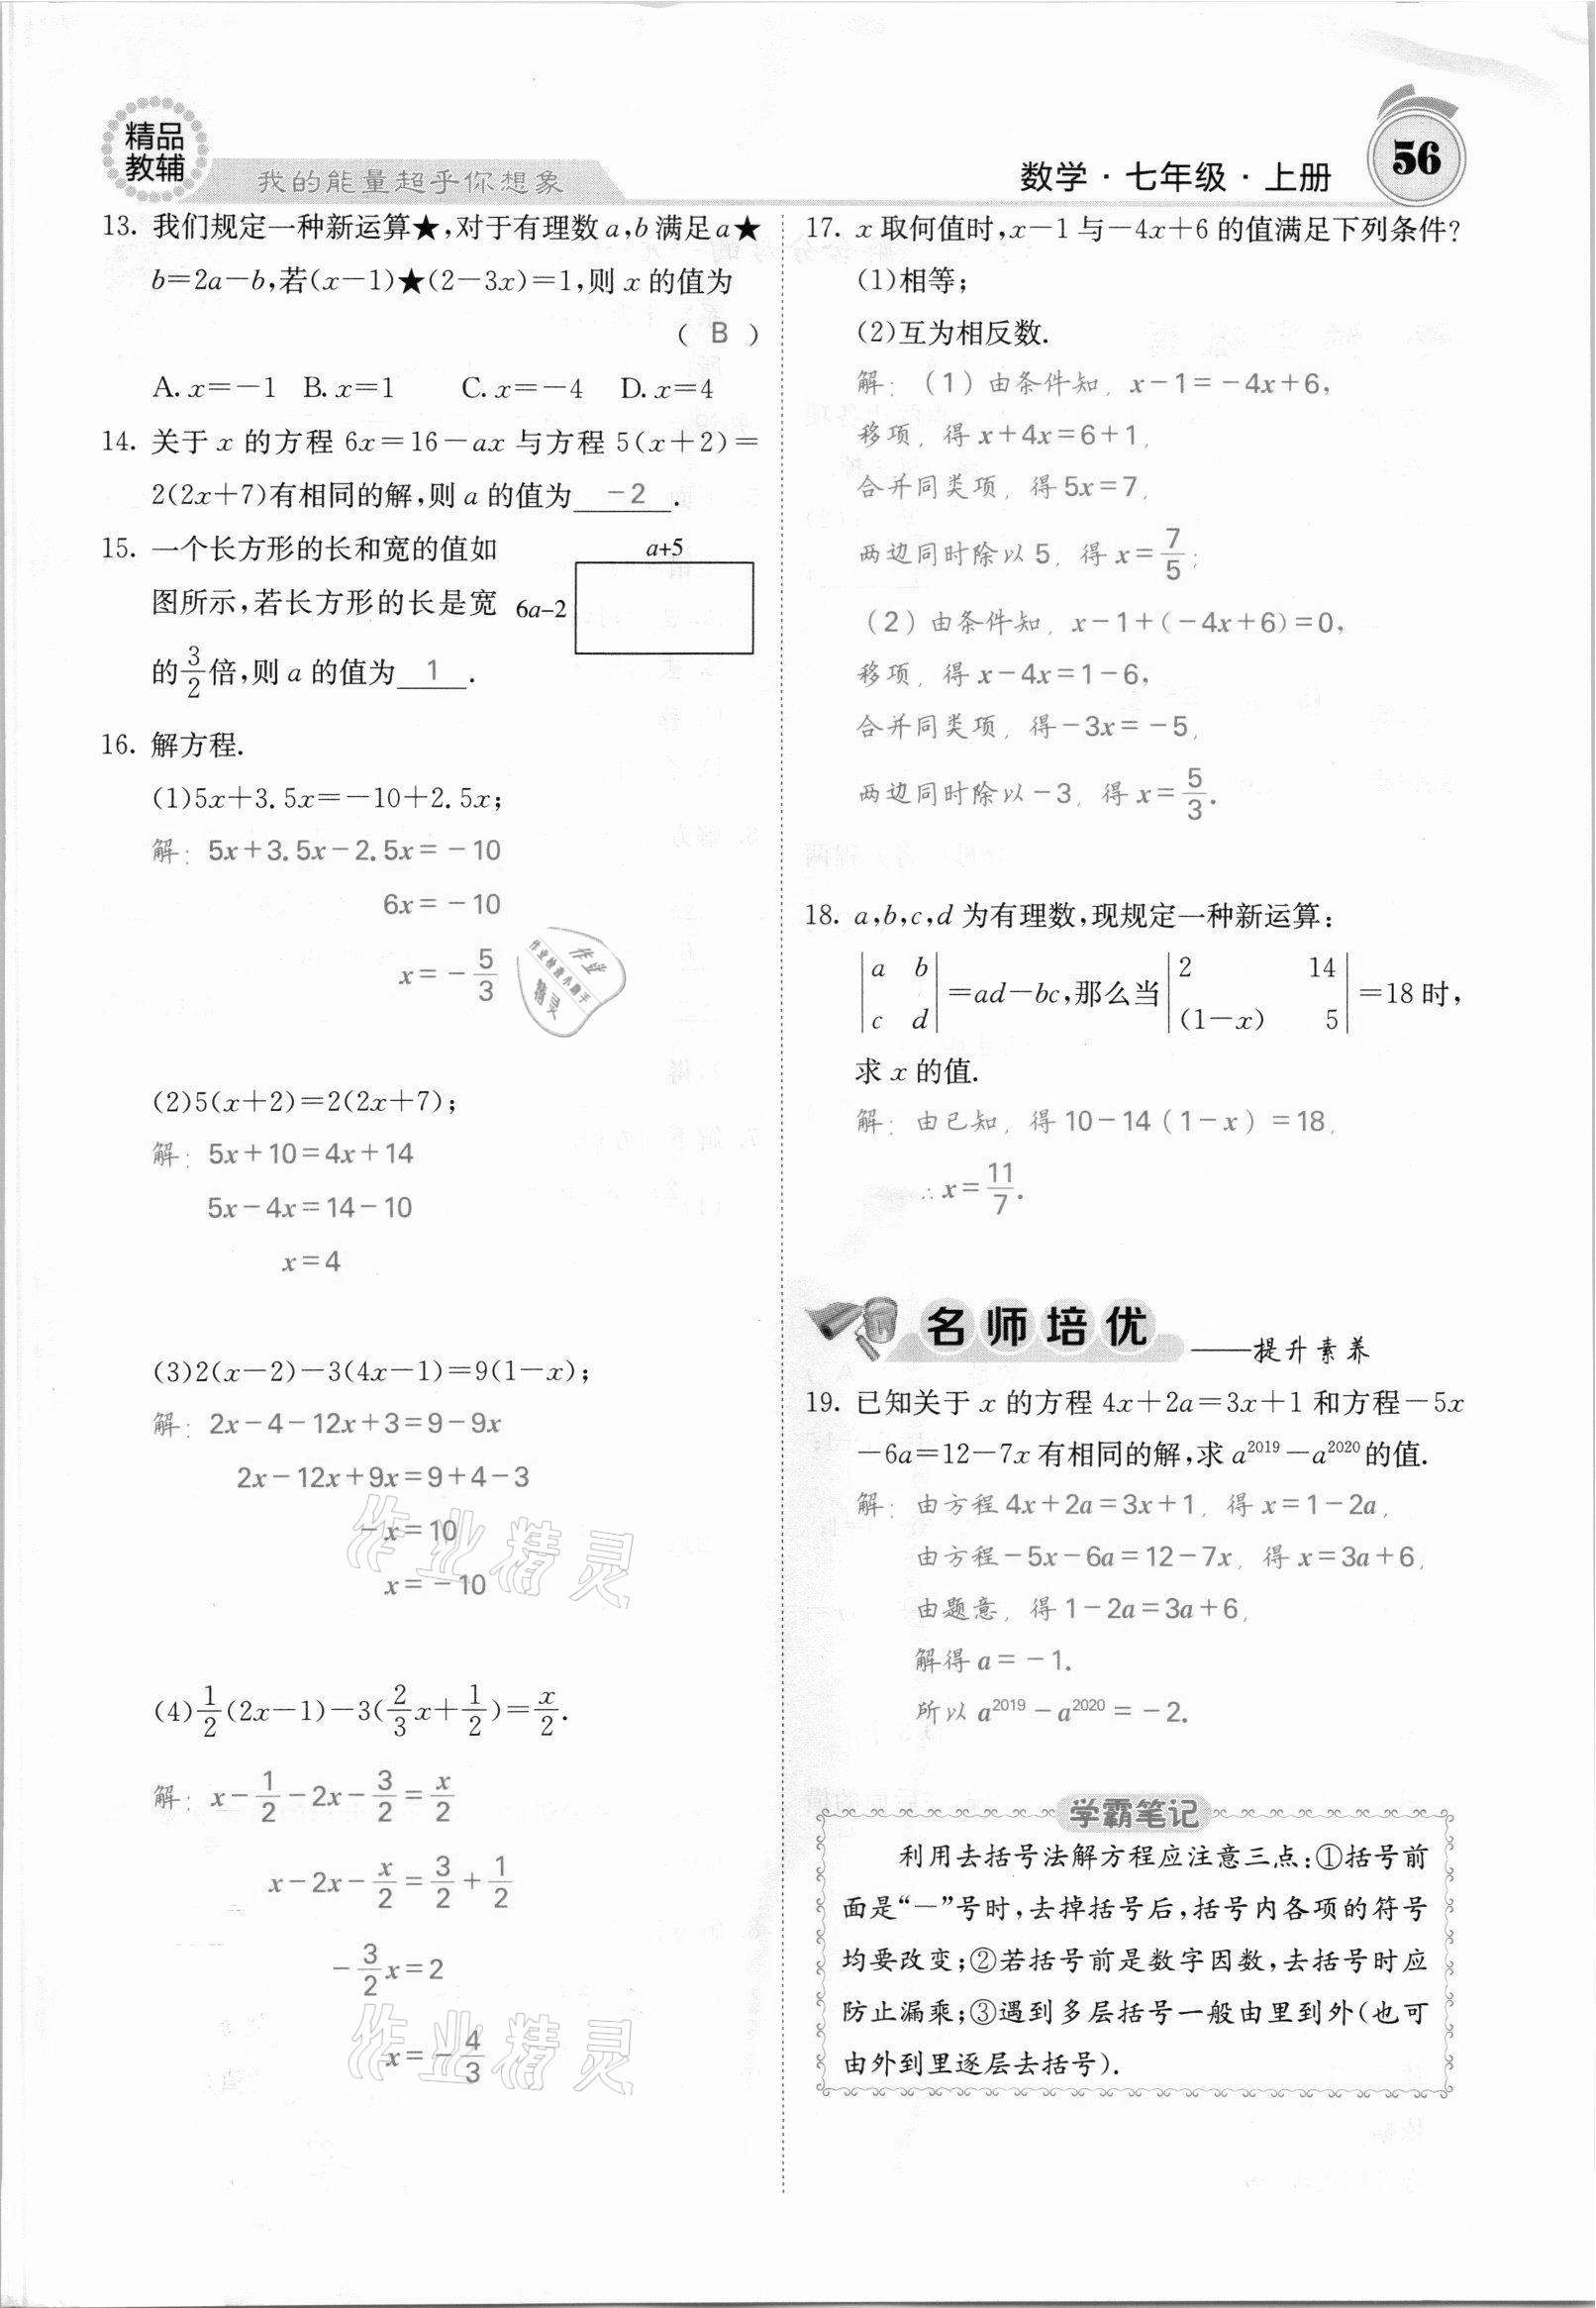 精品
教辅
我的能量超乎你想象
数学·七年级·上册
56
13. 我们规定一种新运算★,对于有理数a,b满足a★
b=2a-b,若(x-1)★(2-3x)=1,则 x 的值为
( B )
A. x=-1 B. x=1 C. x=-4 D. x=4
14. 关于 x 的方程 6x=16-ax 与方程 5(x+2)=
2(2x+7)有相同的解,则 a 的值为 -2 .
15. 一个长方形的长和宽的值如
图所示,若长方形的长是宽
的3/2倍,则 a 的值为 1 .
a+5
6a-2
16. 解方程.
(1)5x+3.5x=-10+2.5x;
解: 5x+3.5x-2.5x=-10
6x=-10
x=-5/3
(2)5(x+2)=2(2x+7);
解: 5x+10=4x+14
5x-4x=14-10
x=4
(3)2(x-2)-3(4x-1)=9(1-x);
解: 2x-4-12x+3=9-9x
2x-12x+9x=9+4-3
-x=10
x=-10
(4)1/2(2x-1)-3(2/3x+1/2)=x/2.
解: x-1/2-2x-3/2=x/2
x-2x-x/2=3/2+1/2
-3/2x=2
x=-4/3
17. x 取何值时,x-1 与-4x+6 的值满足下列条件?
(1)相等;
(2)互为相反数.
解:(1)由条件知, x-1=-4x+6,
移项,得 x+4x=6+1,
合并同类项,得 5x=7,
两边同时除以 5,得 x=7/5;
(2)由条件知, x-1+(-4x+6)=0,
移项,得 x-4x=1-6,
合并同类项,得-3x=-5,
两边同时除以-3,得 x=5/3.
18. a,b,c,d 为有理数,现规定一种新运算:
|a b; c d|=ad-bc,那么当|2 14; (1-x) 5|=18 时,
求 x 的值.
解:由已知,得 10-14(1-x)=18,
∴x=11/7.
名师培优
——提升素养
19. 已知关于 x 的方程 4x+2a=3x+1 和方程-5x
-6a=12-7x 有相同的解,求 a²⁰¹⁹-a²⁰²⁰的值.
解:由方程 4x+2a=3x+1,得 x=1-2a,
由方程-5x-6a=12-7x,得 x=3a+6,
由题意,得 1-2a=3a+6,
解得 a=-1.
所以 a²⁰¹⁹-a²⁰²⁰=-2.
学霸笔记
利用去括号法解方程应注意三点:①括号前
面是“-”号时,去掉括号后,括号内各项的符号
均要改变;②若括号前是数字因数,去括号时应
防止漏乘;③遇到多层括号一般由里到外(也可
由外到里逐层去括号).
作业
作业检查小助手
精灵
作业精灵
作业精灵